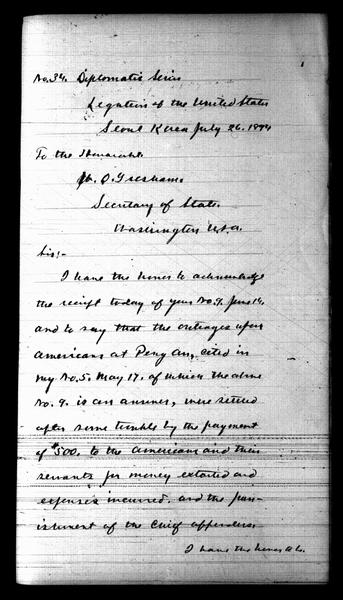 No. 34. Diplomatic Series
Legation of the United States
Seoul Korea July 26. 1894
To the Honorable
W. Q. Gresham
Secretary of State.
Washington U.S.A.
Sir:-
I have the honor to acknowledge
the receipt today of your No. 9. June 14,
and to say that the outrages upon
Americans at Peng An, cited in
my No. 5. May 17. of which the above
No. 9. is an answer, were settled
after some trouble by the payment
of $500. to the Americans and their
servants for money extorted and
expenses incurred. and the pun-
ishment of the chief offenders.
I have the honor &c.